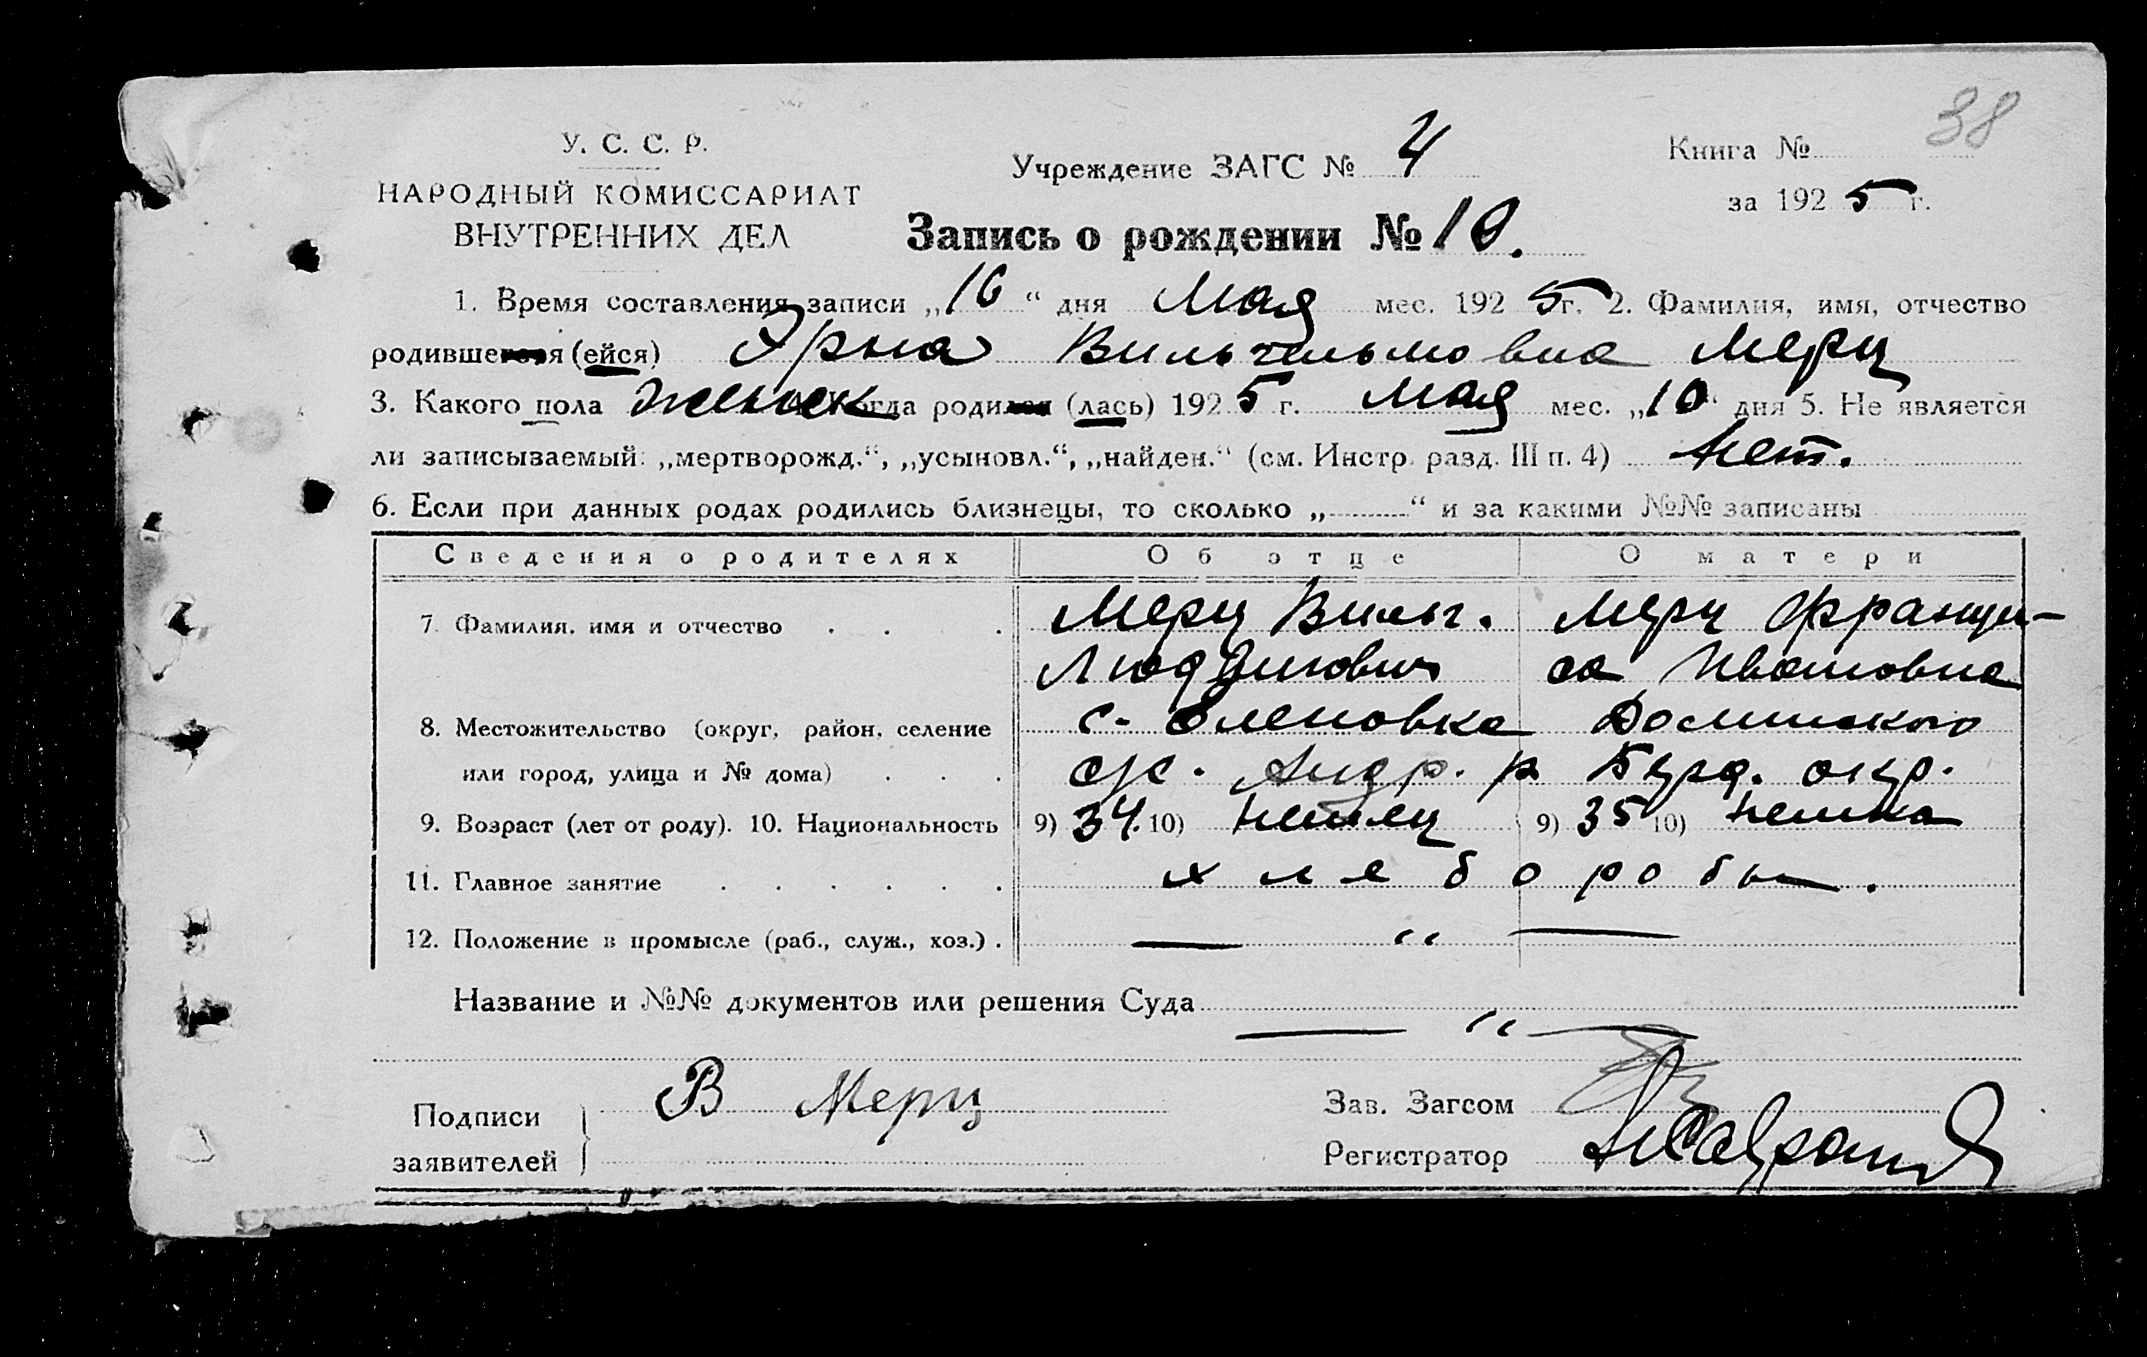 38
У. С. С. Р.
НАРОДНЫЙ КОМИССАРИАТ
ВНУТРЕННИХ ДЕЛ
Учреждение ЗАГС № 4
Книга №
за 1925 г.
Запись о рождении № 10.
1. Время составления записи „16“ дня Мая мес. 1925 г. 2. Фамилия, имя, отчество
родившегося (ейся) Эрна Вильгельмовна Мерц
3. Какого пола женск 4. Когда родился (лась) 1925 г. Мая мес. „10“ дня 5. Не является
ли записываемый: „мертворожд.“, „усыновл.“, „найден.“ (см. Инстр. разд. III п. 4) Нет.
6. Если при данных родах родились близнецы, то сколько „ “ и за какими №№ записаны
Сведения о родителях Об отце О матери
7. Фамилия, имя и отчество . . . Мерц Вильг. Мерц Франци-
Людвигович са Ивановна
8. Местожительство (округ, район, селение с. Еленовка
или город, улица и № дома) . . . с/с. Андр. р Бурд. окр.
9. Возраст (лет от роду). 10. Национальность 9) 34. 10) Немец 9) 35 10) Немка
11. Главное занятие . . . . . . хлеборобы.
12. Положение в промысле (раб., служ., хоз.) . — „ —
Название и №№ документов или решения Суда
— „ —
Подписи
заявителей
В Мерц
Зав. Загсом
Регистратор